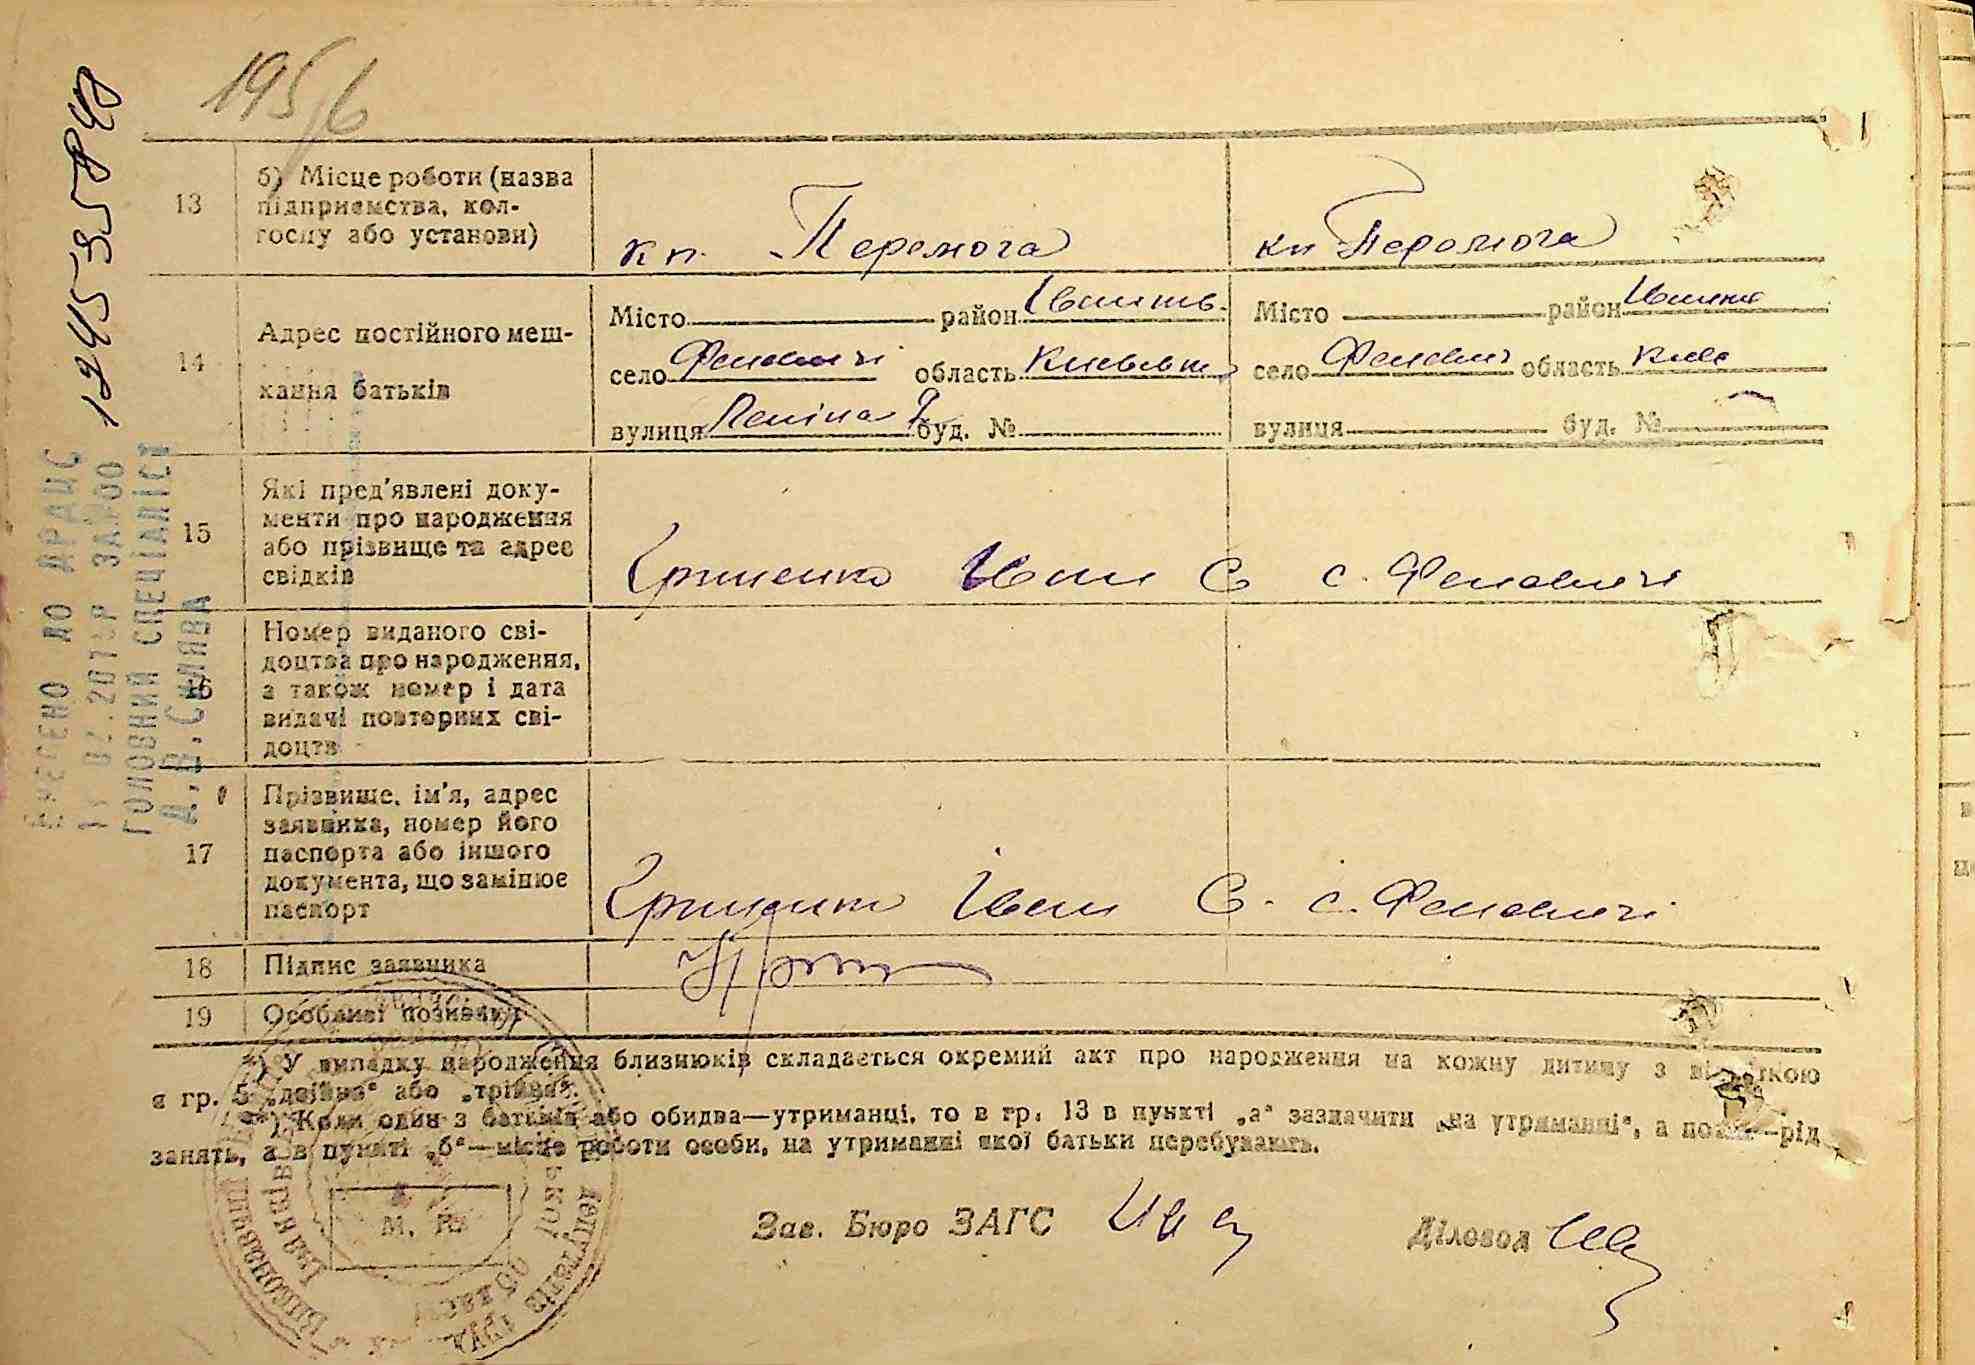 1956
1245335848
ВНЕСЕНО ДО ДРАЦС
ГОЛОВНИЙ СПЕЦІАЛІСТ
13
б) Місце роботи (назва
підприємства, кол-
госпу або установи)
кп. Перемога
кп Перемога
14
Адрес постійного меш-
кання батьків
Місто район
село Феневичі область Київськ
вулиця Леніна буд. №
Місто район
село Феневич область Києв
вулиця буд. №
15
Які пред'явлені доку-
менти про народження
або прізвище та адрес
свідків
Гриценко Іван Є с. Феневичі
16
Номер виданого сві-
доцтва про народження,
а також номер і дата
видачі повторних сві-
доцтв
17
Прізвище, ім'я, адрес
заявника, номер його
паспорта або іншого
документа, що замінює
паспорт
Гриценко Іван Є. с. Феневичі
18
Підпис заявника
19
Особливі позначки
*) У випадку народження близнюків складається окремий акт про народження на кожну дитину з відміткою
в гр. 5 „двійня" або „трійня".
**) Коли один з батьків або обидва—утриманці, то в гр. 13 в пункті „а" зазначити „на утриманні", а потім—рід
занять, а в пункті „б"—місце роботи особи, на утриманні якої батьки перебувають.
М. П.
Зав. Бюро ЗАГС
Діловод